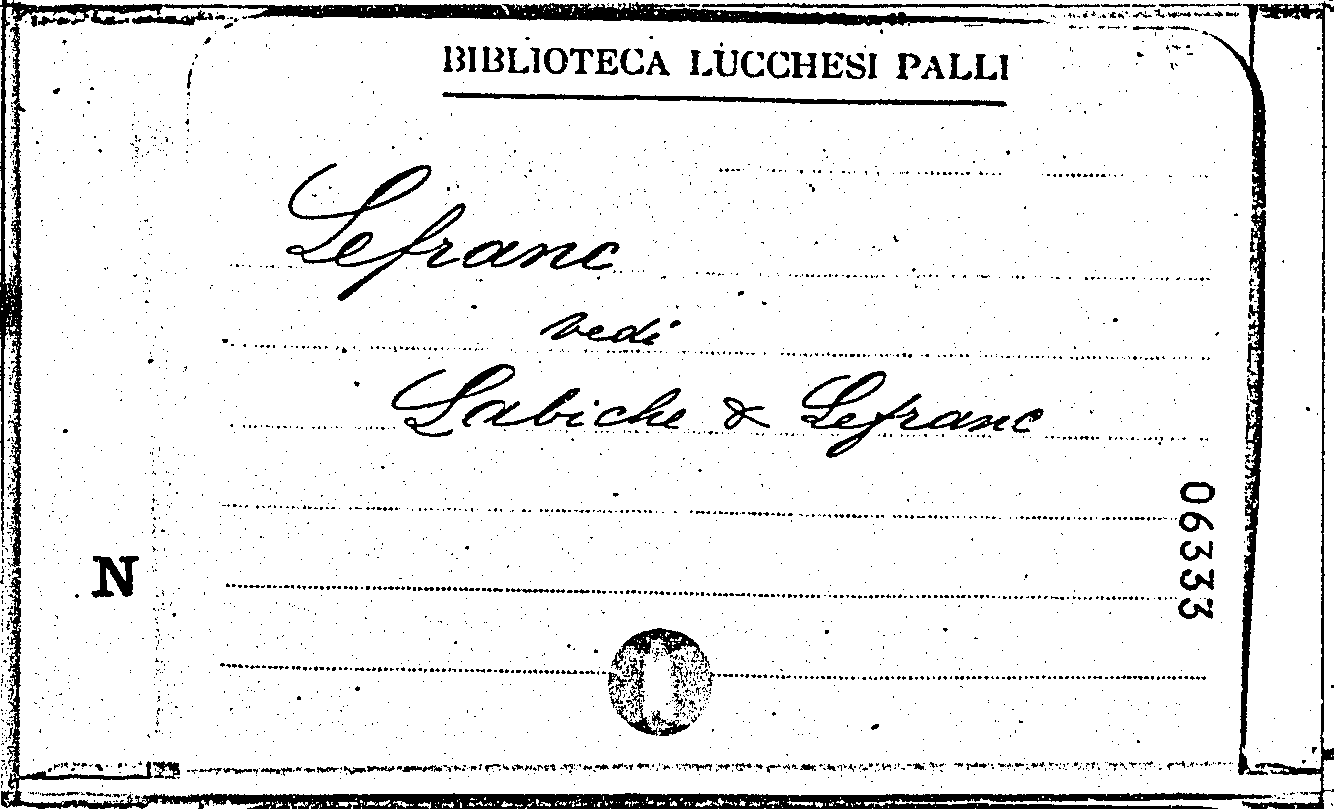 BIBLIOTECA LUCCHESI PALLI
Lefranc
vedi
Labiche & Lefranc
06333
N